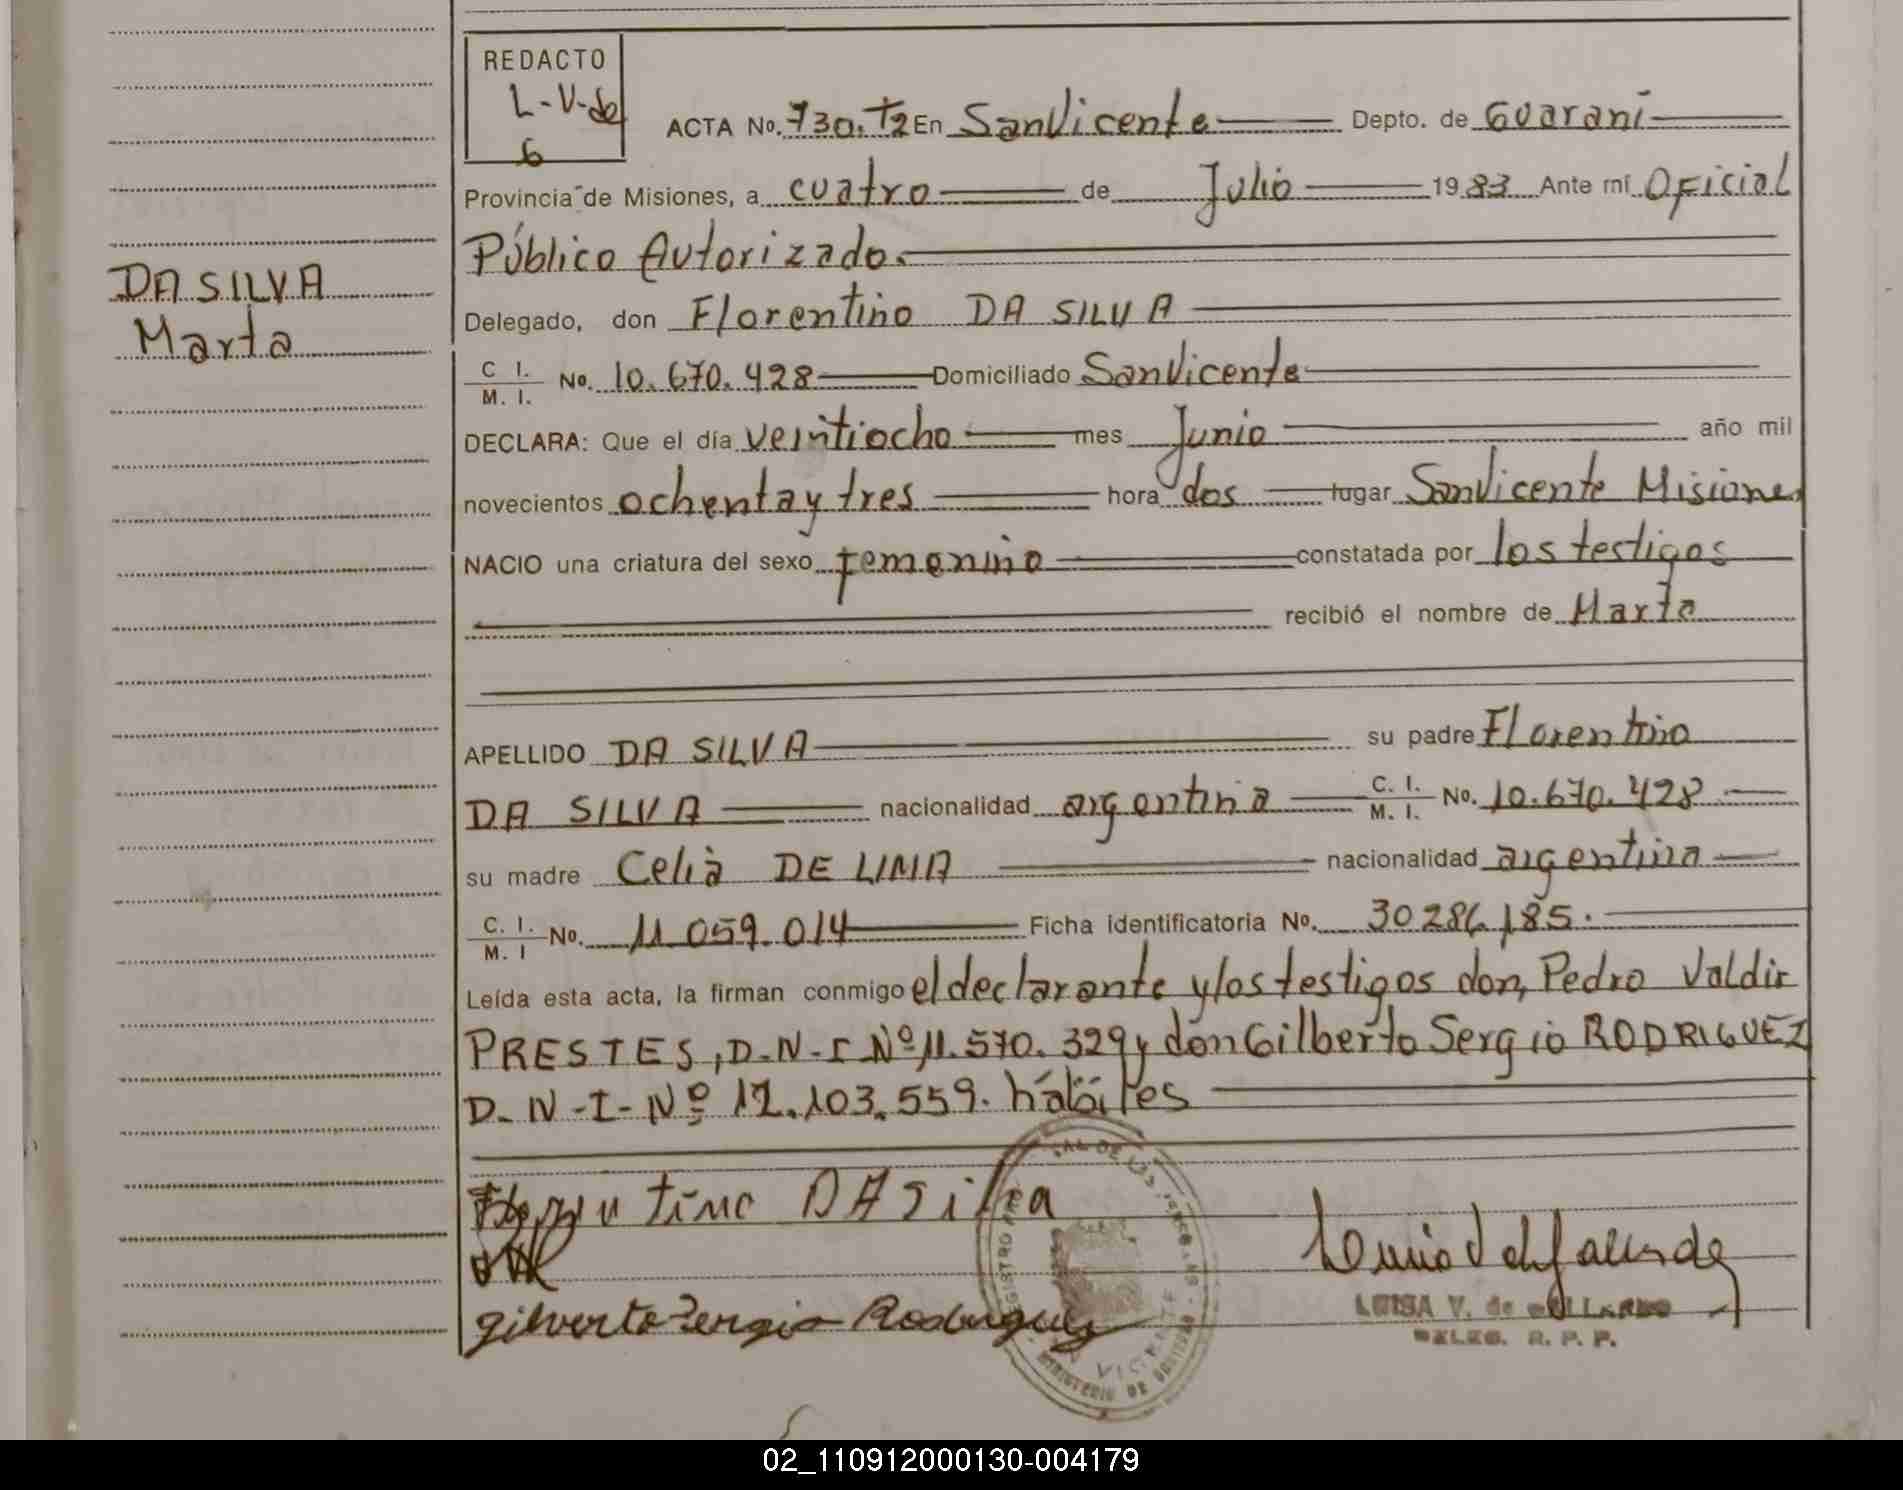 REDACTO
L-V-de
G
ACTA No. 730. T2 En SanVicente Depto. de Guaraní
Provincia de Misiones, a cuatro de Julio 1983 Ante mí Oficial
Público Autorizado.
DA SILVA
Marta
Delegado, don Florentino DA SILVA
C. I.
M. I. No. 10.670.428 Domiciliado SanVicente
DECLARA: Que el día veintiocho mes Junio año mil
novecientos ochenta y tres hora dos lugar SanVicente Misiones
NACIO una criatura del sexo femenino constatada por los testigos
recibió el nombre de Marta
APELLIDO DA SILVA su padre Florentino
DA SILVA nacionalidad argentina C. I. M. I. No. 10.670.428
su madre Celia DE LIMA nacionalidad argentina
C. I. M. I No. 11.059.014 Ficha identificatoria No. 30.286.185.
Leída esta acta, la firman conmigo el declarante y los testigos don, Pedro Valdir
PRESTES, D-N-I Nº 11.570.329 y don Gilberto Sergio RODRIGUEZ
D-N-I-Nº 12.103.559. hábiles
DA Silva
Gilverto Sergio Rodriguez
LUISA V. de GALLARDO
DELEG. R. P. P.
REGISTRO
VICENTE
MINISTERIO DE GOBIERNO
02_110912000130-004179